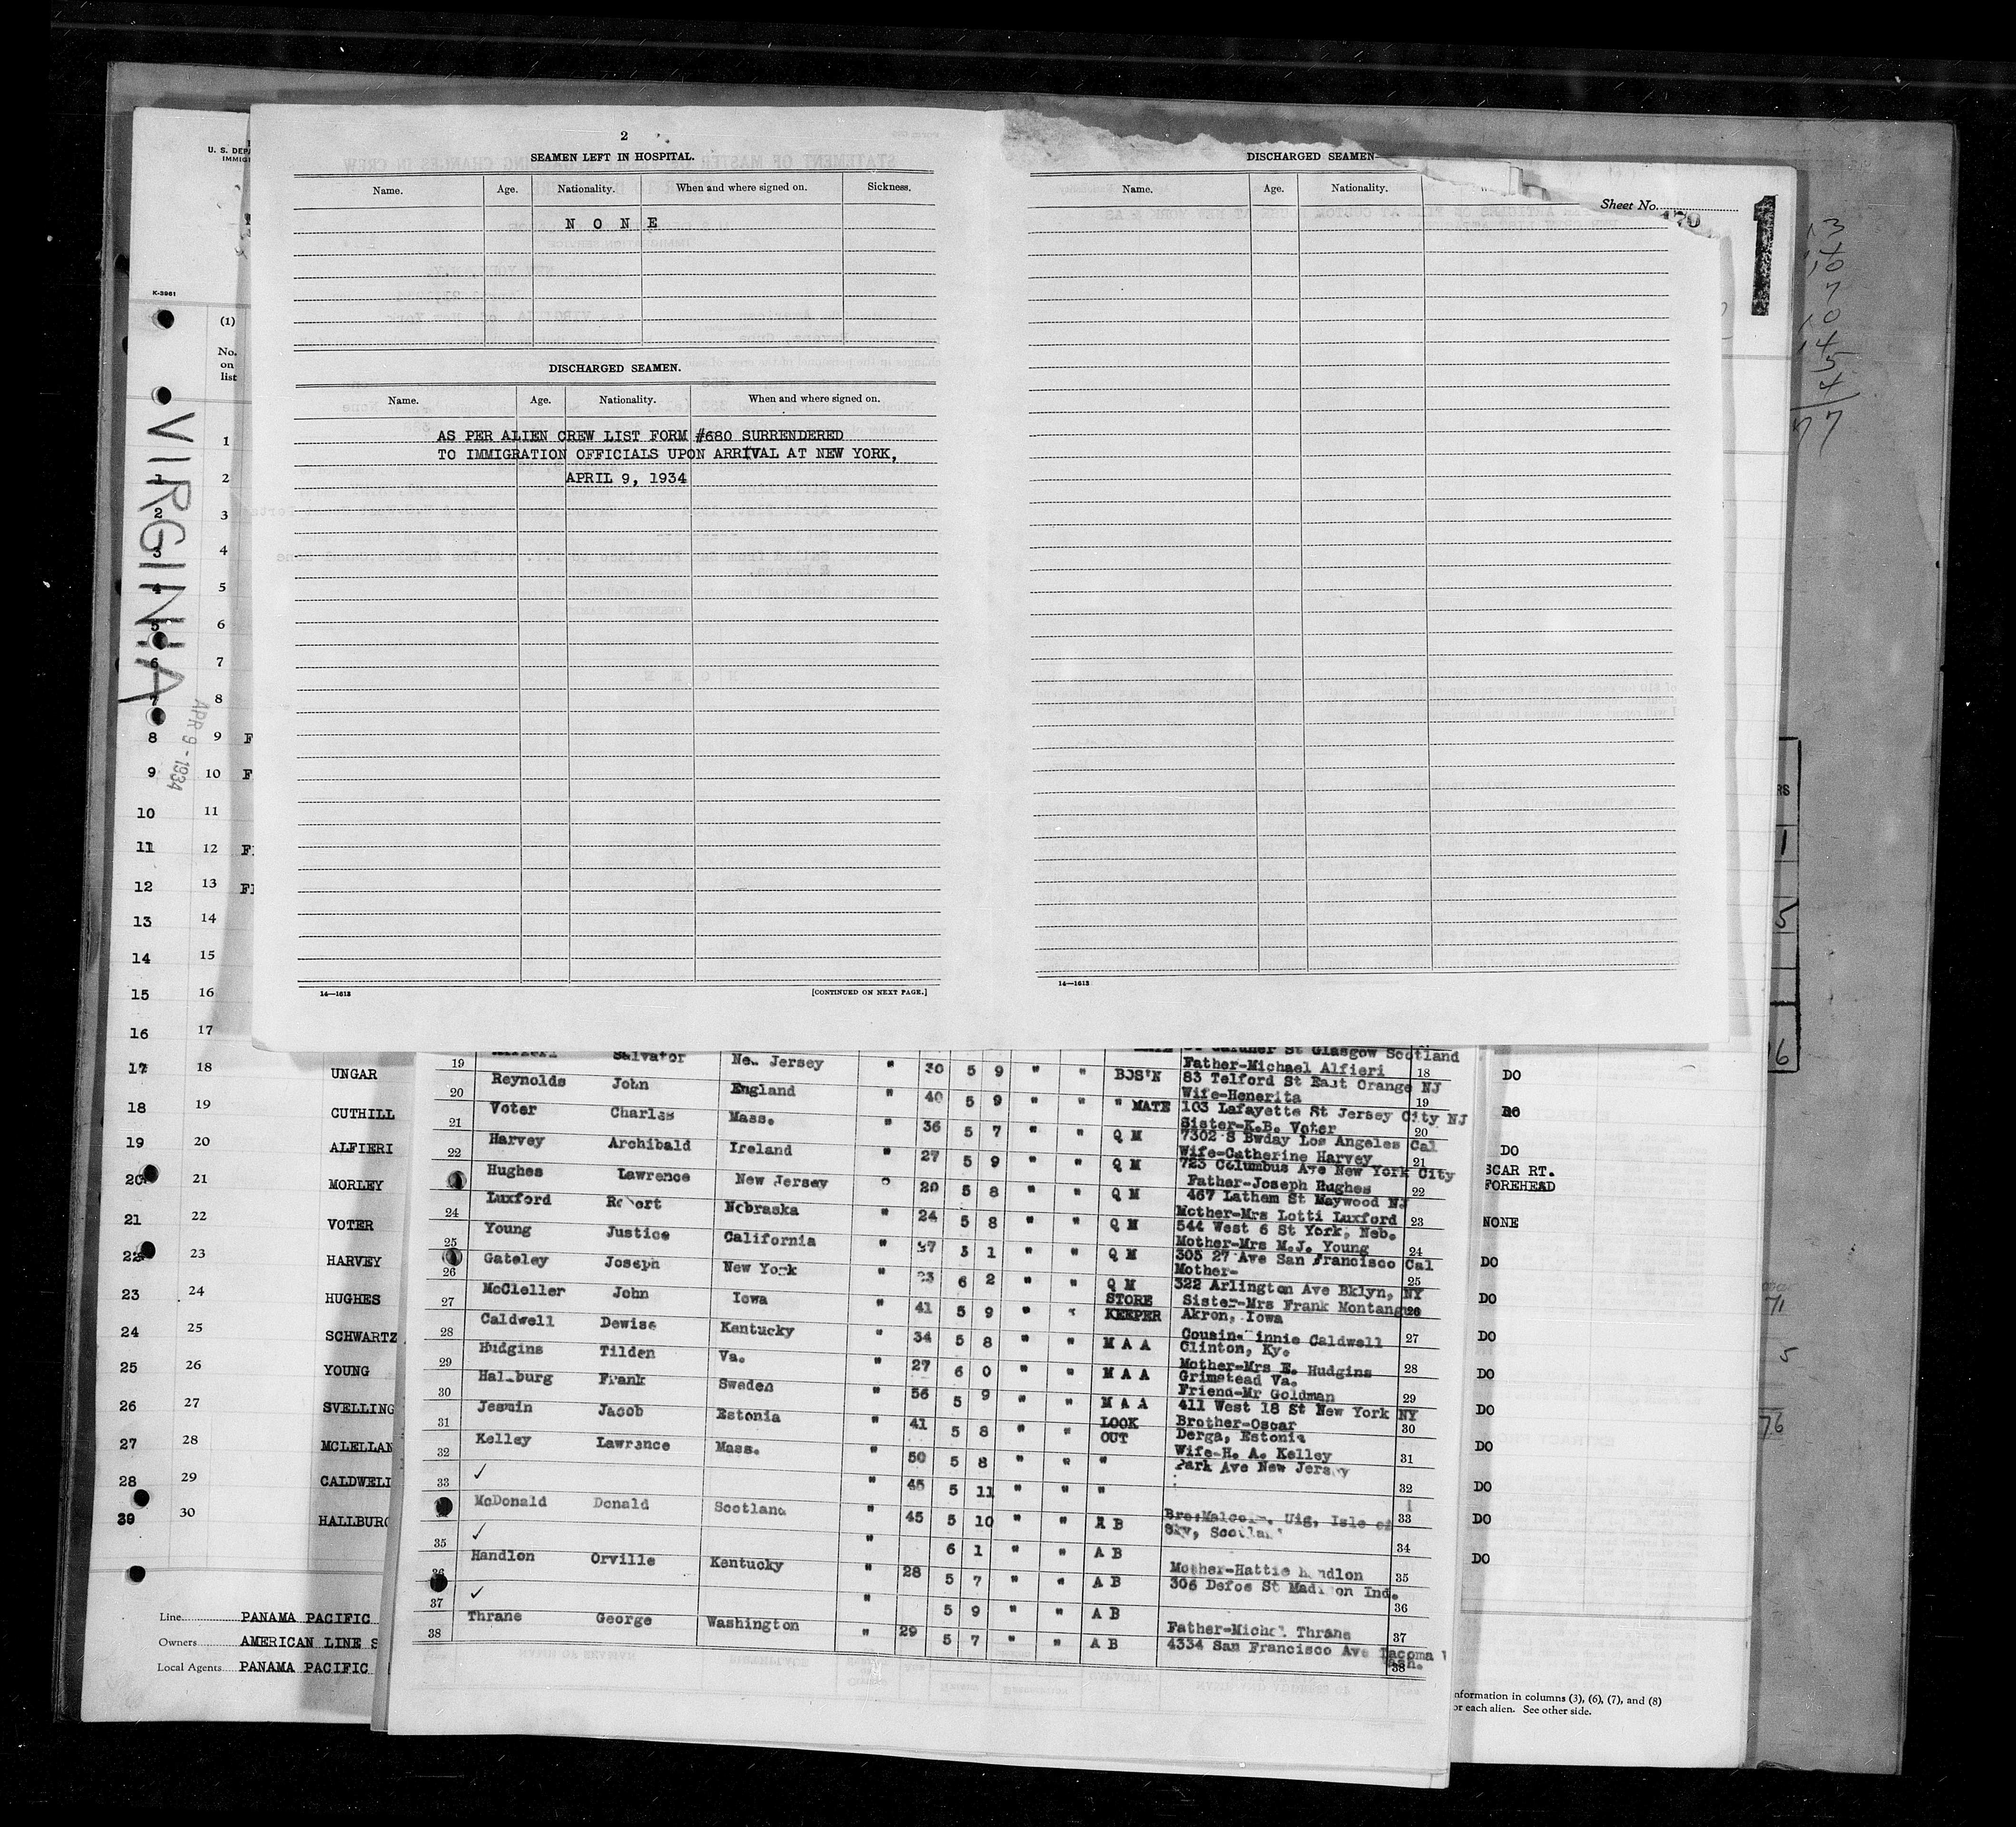 2
SEAMEN LEFT IN HOSPITAL.
Name. Age. Nationality. When and where signed on. Sickness.
N O N E
DISCHARGED SEAMEN.
Name. Age. Nationality. When and where signed on.
AS PER ALIEN CREW LIST FORM #680 SURRENDERED
TO IMMIGRATION OFFICIALS UPON ARRIVAL AT NEW YORK,
APRIL 9, 1934
14—1613 [CONTINUED ON NEXT PAGE.]
DISCHARGED SEAMEN
Name. Age. Nationality.
Sheet No.
1
14—1613
U. S. DEP
IMMIG
K-3961
(1)
No.
on
list
VIRGINIA
APR 9-1934
1
1 2
2 3
3 4
4 5
5 6
6 7
7 8
8 9 F
9 10 F
10 11
11 12
12 13
13 14
14 15
15 16
16 17
17 18 UNGAR DO
18 19 CUTHILL
19 20 ALFIERI DO
20 21 MORLEY SCAR RT.
FOREHEAD
21 22 VOTER NONE
22 23 HARVEY DO
23 24 HUGHES DO
24 25 SCHWARTZ DO
25 26 YOUNG DO
26 27 SVELLING DO
27 28 MCLELLAN DO
28 29 CALDWELL DO
39 30 HALLBURG DO
DO
Line PANAMA PACIFIC
Owners AMERICAN LINE S
Local Agents PANAMA PACIFIC
St Glasgow Scotland
19 Salvator New Jersey " 30 5 9 " " BOS'N Father-Michael Alfieri 18
83 Telford St East Orange NJ
20 Reynolds John England " 40 5 9 " " " MATE Wife-Henerita 19
103 Lafayette St Jersey City NJ
21 Voter Charles Mass. " 36 5 7 " " Q M Sister-K.B. Voter 20
7302 S Bway Los Angeles Cal
22 Harvey Archibald Ireland " 27 5 9 " " Q M Wife-Catherine Harvey 21
723 Columbus Ave New York City
Hughes Lawrence New Jersey " 20 5 8 " " Q M Father-Joseph Hughes 22
467 Latham St Maywood NJ
24 Luxford Robert Nebraska " 24 5 8 " " Q M Mother-Mrs Lotti Luxford 23
544 West 6 St York, Neb.
25 Young Justice California " 5 1 " " Q M Mother-Mrs M.J. Young 24
305 27 Ave San Francisco Cal
26 Gateley Joseph New York " 23 6 2 " " Q M Mother- 25
322 Arlington Ave Bklyn, NY
27 McCleller John Iowa " 41 5 9 " STORE KEEPER Sister-Mrs Frank Montangue 26
Akron, Iowa
28 Caldwell Dewise Kentucky " 34 5 8 " " M A A Caldwell 27
Clinton, Ky.
29 Hudgins Tilden Va. " 27 6 0 " " M A A Mother-Mrs E. Hudgins 28
Grimstead Va.
30 Hallburg Frank Sweden " 56 5 9 " " M A A Friend-Mr Goldman 29
411 West 18 St New York NY
31 Jesmin Jacob Estonia " 41 5 8 " " LOOK OUT Brother-Oscar 30
Derga, Estonia
32 Kelley Lawrance Mass. " 50 5 8 " " " Wife-H. A. Kelley 31
Park Ave New Jersey
33 ✓ " 45 5 11 " " " 32
McDonald Donald Scotland " 45 5 10 " " A B Bro-Malcolm, Uig, Isle of 33
Sky, Scotland
35 ✓ " 6 1 " " A B 34
36 Handlon Orville Kentucky " 28 5 7 " " A B Mother-Hattie Handlon 35
306 Defoe St Madison Ind.
37 ✓ " 5 9 " " A B 36
38 Thrane George Washington " 29 5 7 " " A B Father-Michel Thrane 37
4334 San Francisco Ave Tacoma
Wash.
38
nformation in columns (3), (6), (7), and (8)
or each alien. See other side.